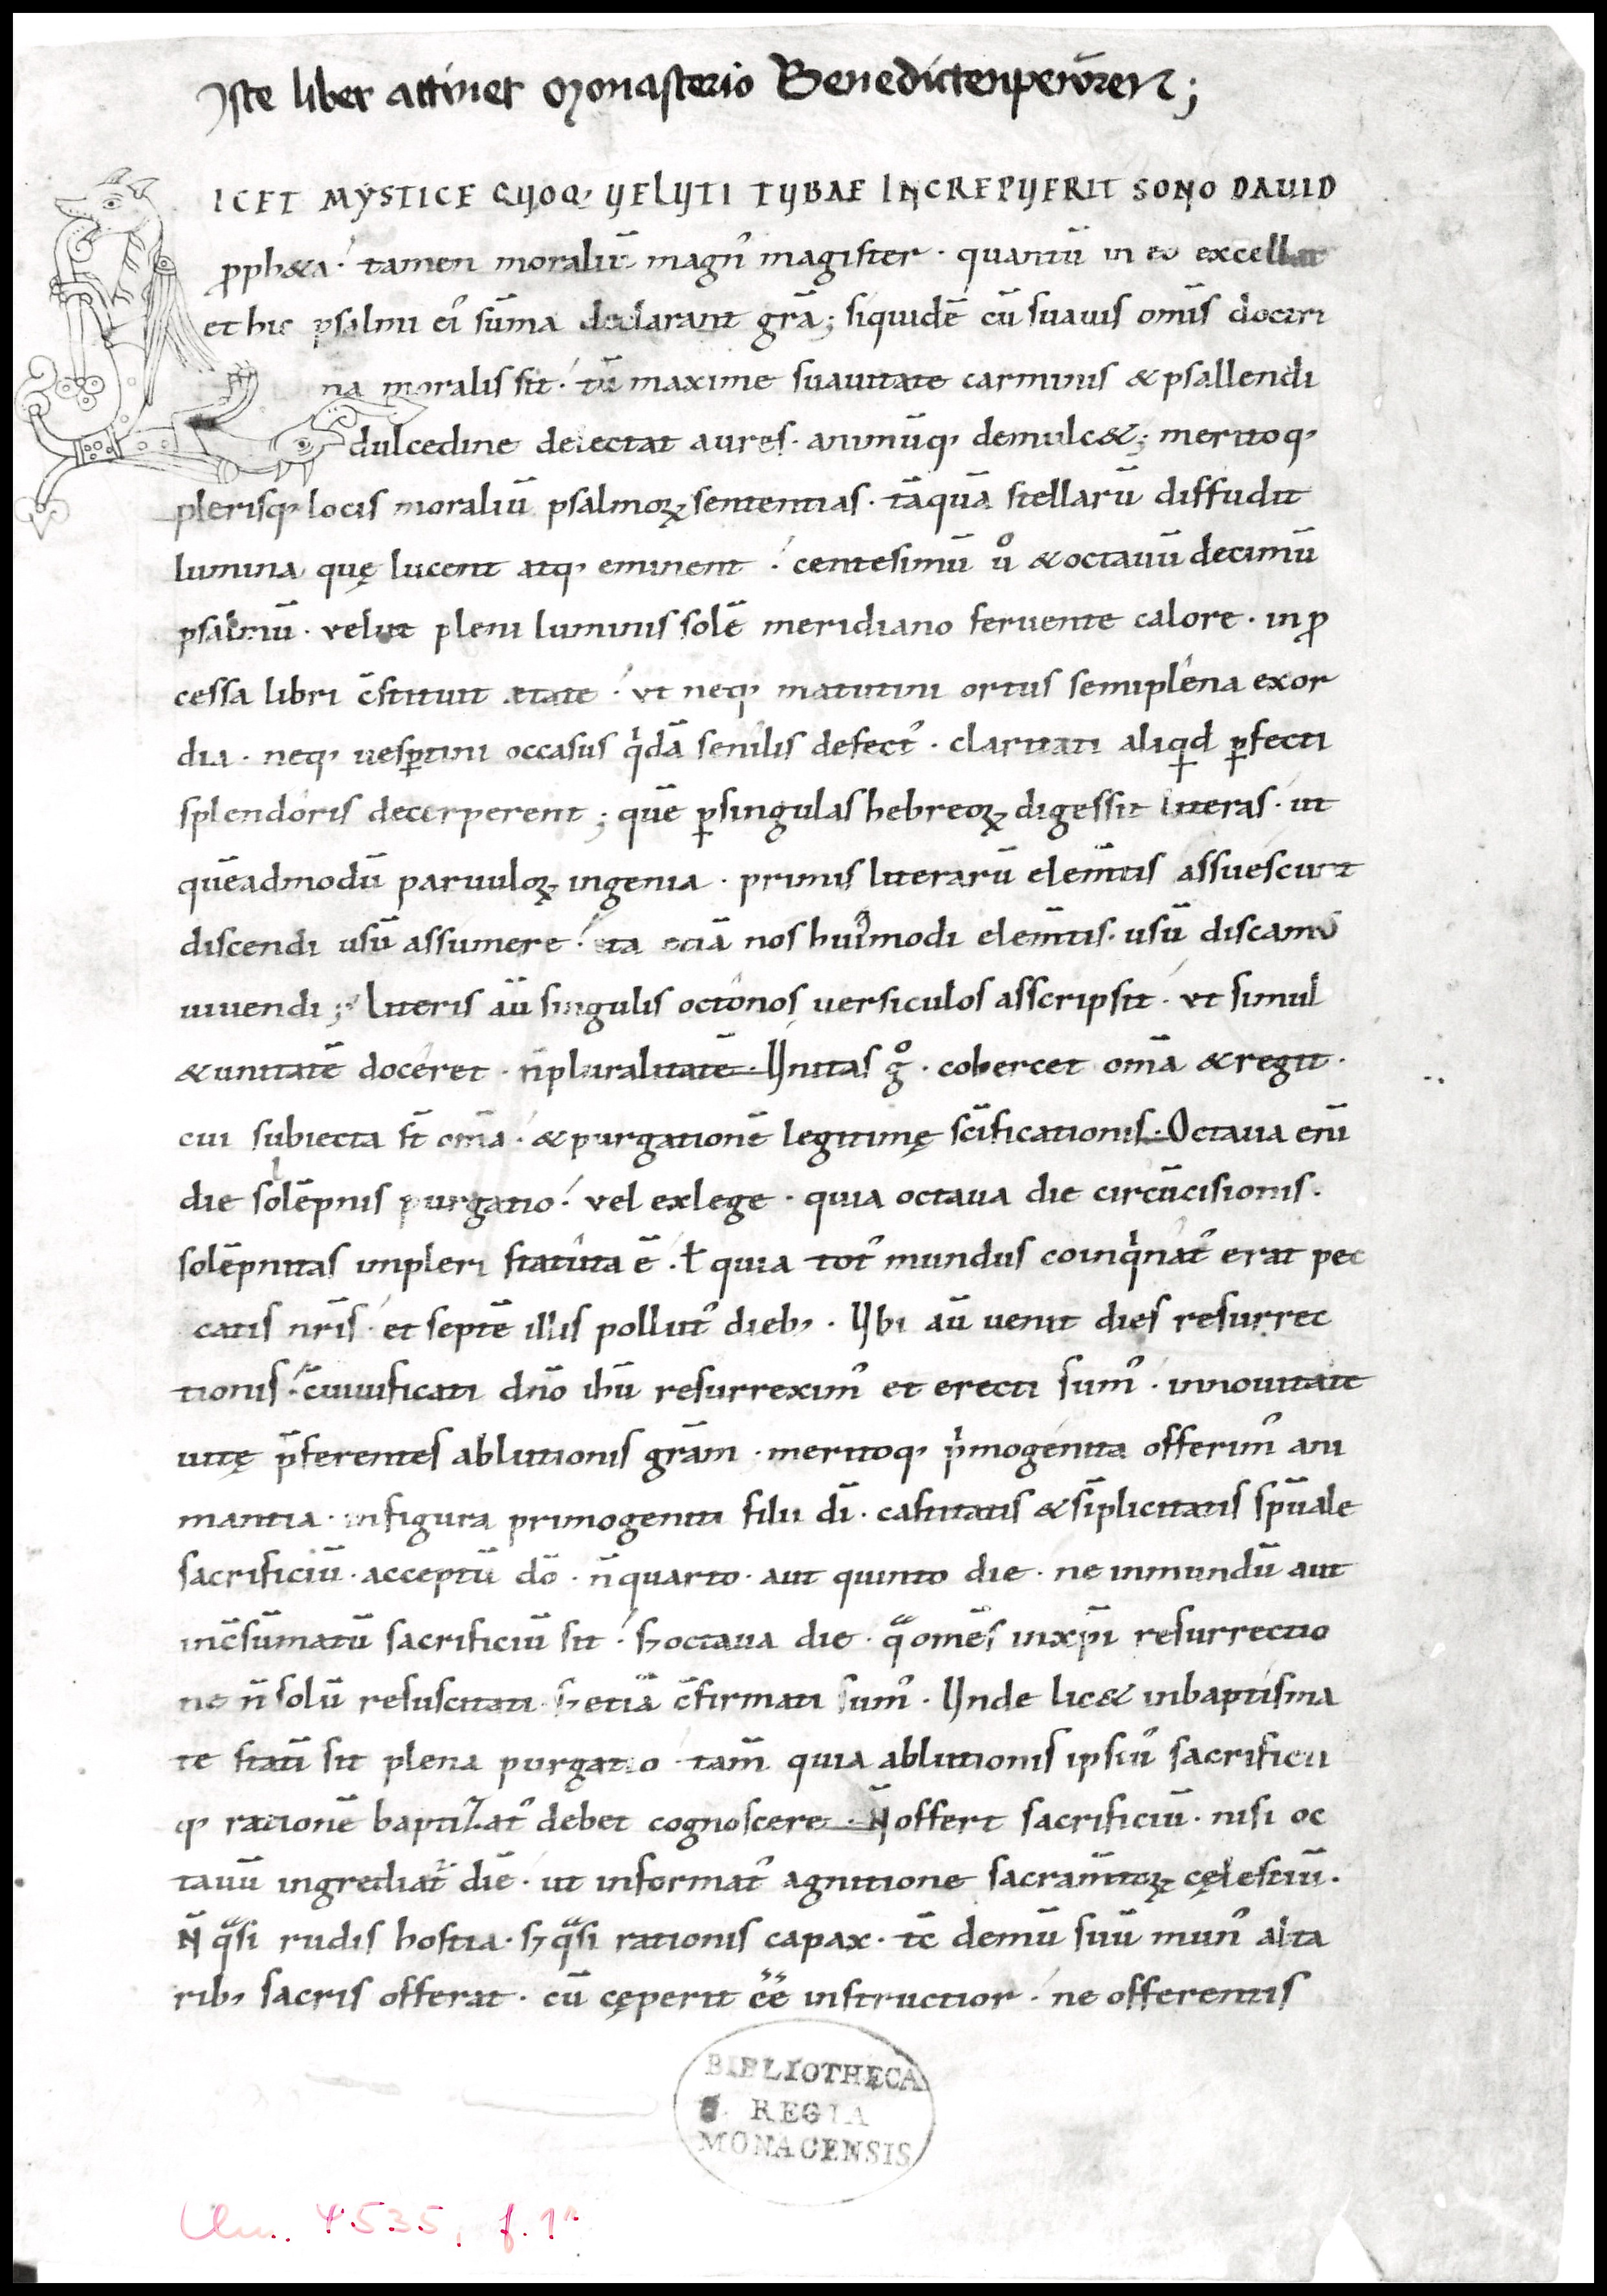 Iste liber attinet Monasterio Benedictenpewren;
ICET MYSTICE QUOQ, UELUTI TUBAE INCREPUERIT SONO DAUID
ꝓph&a·́ tamen moraliū magn᾽ magister · quantū in eo excellat
et hic psalmi ei᾽ sūma declarant grā; siquidē cū suauis om̄s doctri
na moralis sit·́ tū maxime suauitate carminis & psallendi
dulcedine delectat aures · animūq, demulc&; meritoq,
plerisq, locis moraliū psalmoꝝ sententias · tāquā stellarū diffudit
lumina quę lucent atq, eminent ·́ centesimū ů & octauū decimū
psalmū · velut pleni luminis solē meridiano feruente calore · in ꝓ
cessa libri c̄stituit ętate ·́ vt neq, matutini ortus semiplena exor
dia · neq, uesꝑtini occasus qͥdā senilis defect᾽ · claritati aliqͥd ꝑfecti
splendoris decerperent; quē ꝑ singulas hebreoꝝ digessit literas · ut
quēadmodū paruuloꝝ ingenia · primis literarū elem̄tis assuescunt
discendi usū assumere·́ ita etiā nos hui᾽modi elem̄tis · usū discam᾽
uiuendi; Literis aū singulis octonos versiculos asscripsit · vt simul
& unitatē doceret · n̄ pluralitatē · Unitas gͦ · cohercet om̄a & regit ·
cui subiecta st̄ om̄a·́ & purgationē legitimę sc̄ificationis · Octaua eni̅
die solēpnis purgatio·́ vel ex lege · quia octaua die circūcisionis ·
solēpnitas impleri statuta ē · ł quia tot᾽ mundus coinqͥnat᾽ erat pec
catis nr̄is·́ et septē illis pollut᾽ dieb, · Ubi aū uenit dies resurrec
tionis·́ c̄uiuificati dn̄o ih̄u resurrexim᾽ et erecti sum᾽ · in nouitate
uitę p̄ferentes ablutionis grām · meritoq, pͥmogenita offerim᾽ ani
mantia · in figura primogeniti filii dī · castitatis & sīplicitatis sp̄uale
sacrificiū · acceptū dō · n̄ quarto · aut quinto die · ne inmundū aut
inc̄sūmatū sacrificiū sit·́ sꝫ octaua die · qͣ omēs in xp̄i resurrectio
ne n̄ solū resuscitati · sꝫ etiā c̄firmati sum᾽ · Unde lic& in baptisma
te stati̅ sit plena purgatio · tam̄ quia ablutionis ipsiu᾽ sacrificii
q, rationē baptizat᾽ debet cognoscere · N̄ offert sacrificiū · nisi oc
tauū ingrediat᾽ diē · ut informat᾽ agnitione sacram̄toꝝ cęlestiū ·
N̄ qͣsi rudis hostia · sꝫ qͣsi rationis capax · tc̄ demū suū mun᾽ alta
rib, sacris offerat · cū cęperit ēē instructior ·́ ne offerentis
BIBLIOTHECA
REGIA
MONACENSIS
Clm. 4535, f. 1r